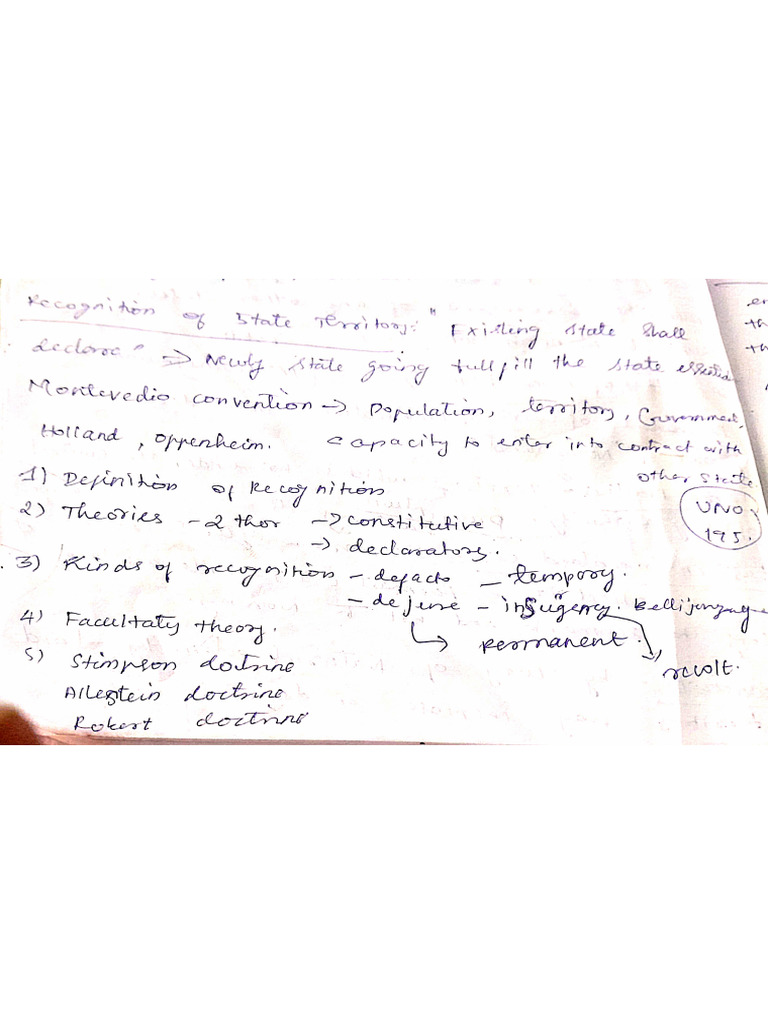 Recognition of State Territory: " Existing State Shall
declare" => Newly State going fullfill the State essential
Montevedio convention -> Population, territory, Government,
Holland, Oppenheim. Capacity to enter into contract with
other State
1) Definition of Recognition
UNO
195.
2) Theories - 2 theor -> constitutive
-> declaratory.
3) Kinds of recognition - defacto - tempory.
- dejure - insugency.
-> Permanent.
revolt.
4) Facultaty theory.
5) Stimpson doctrine
doctrine
doctrine
en
th
th